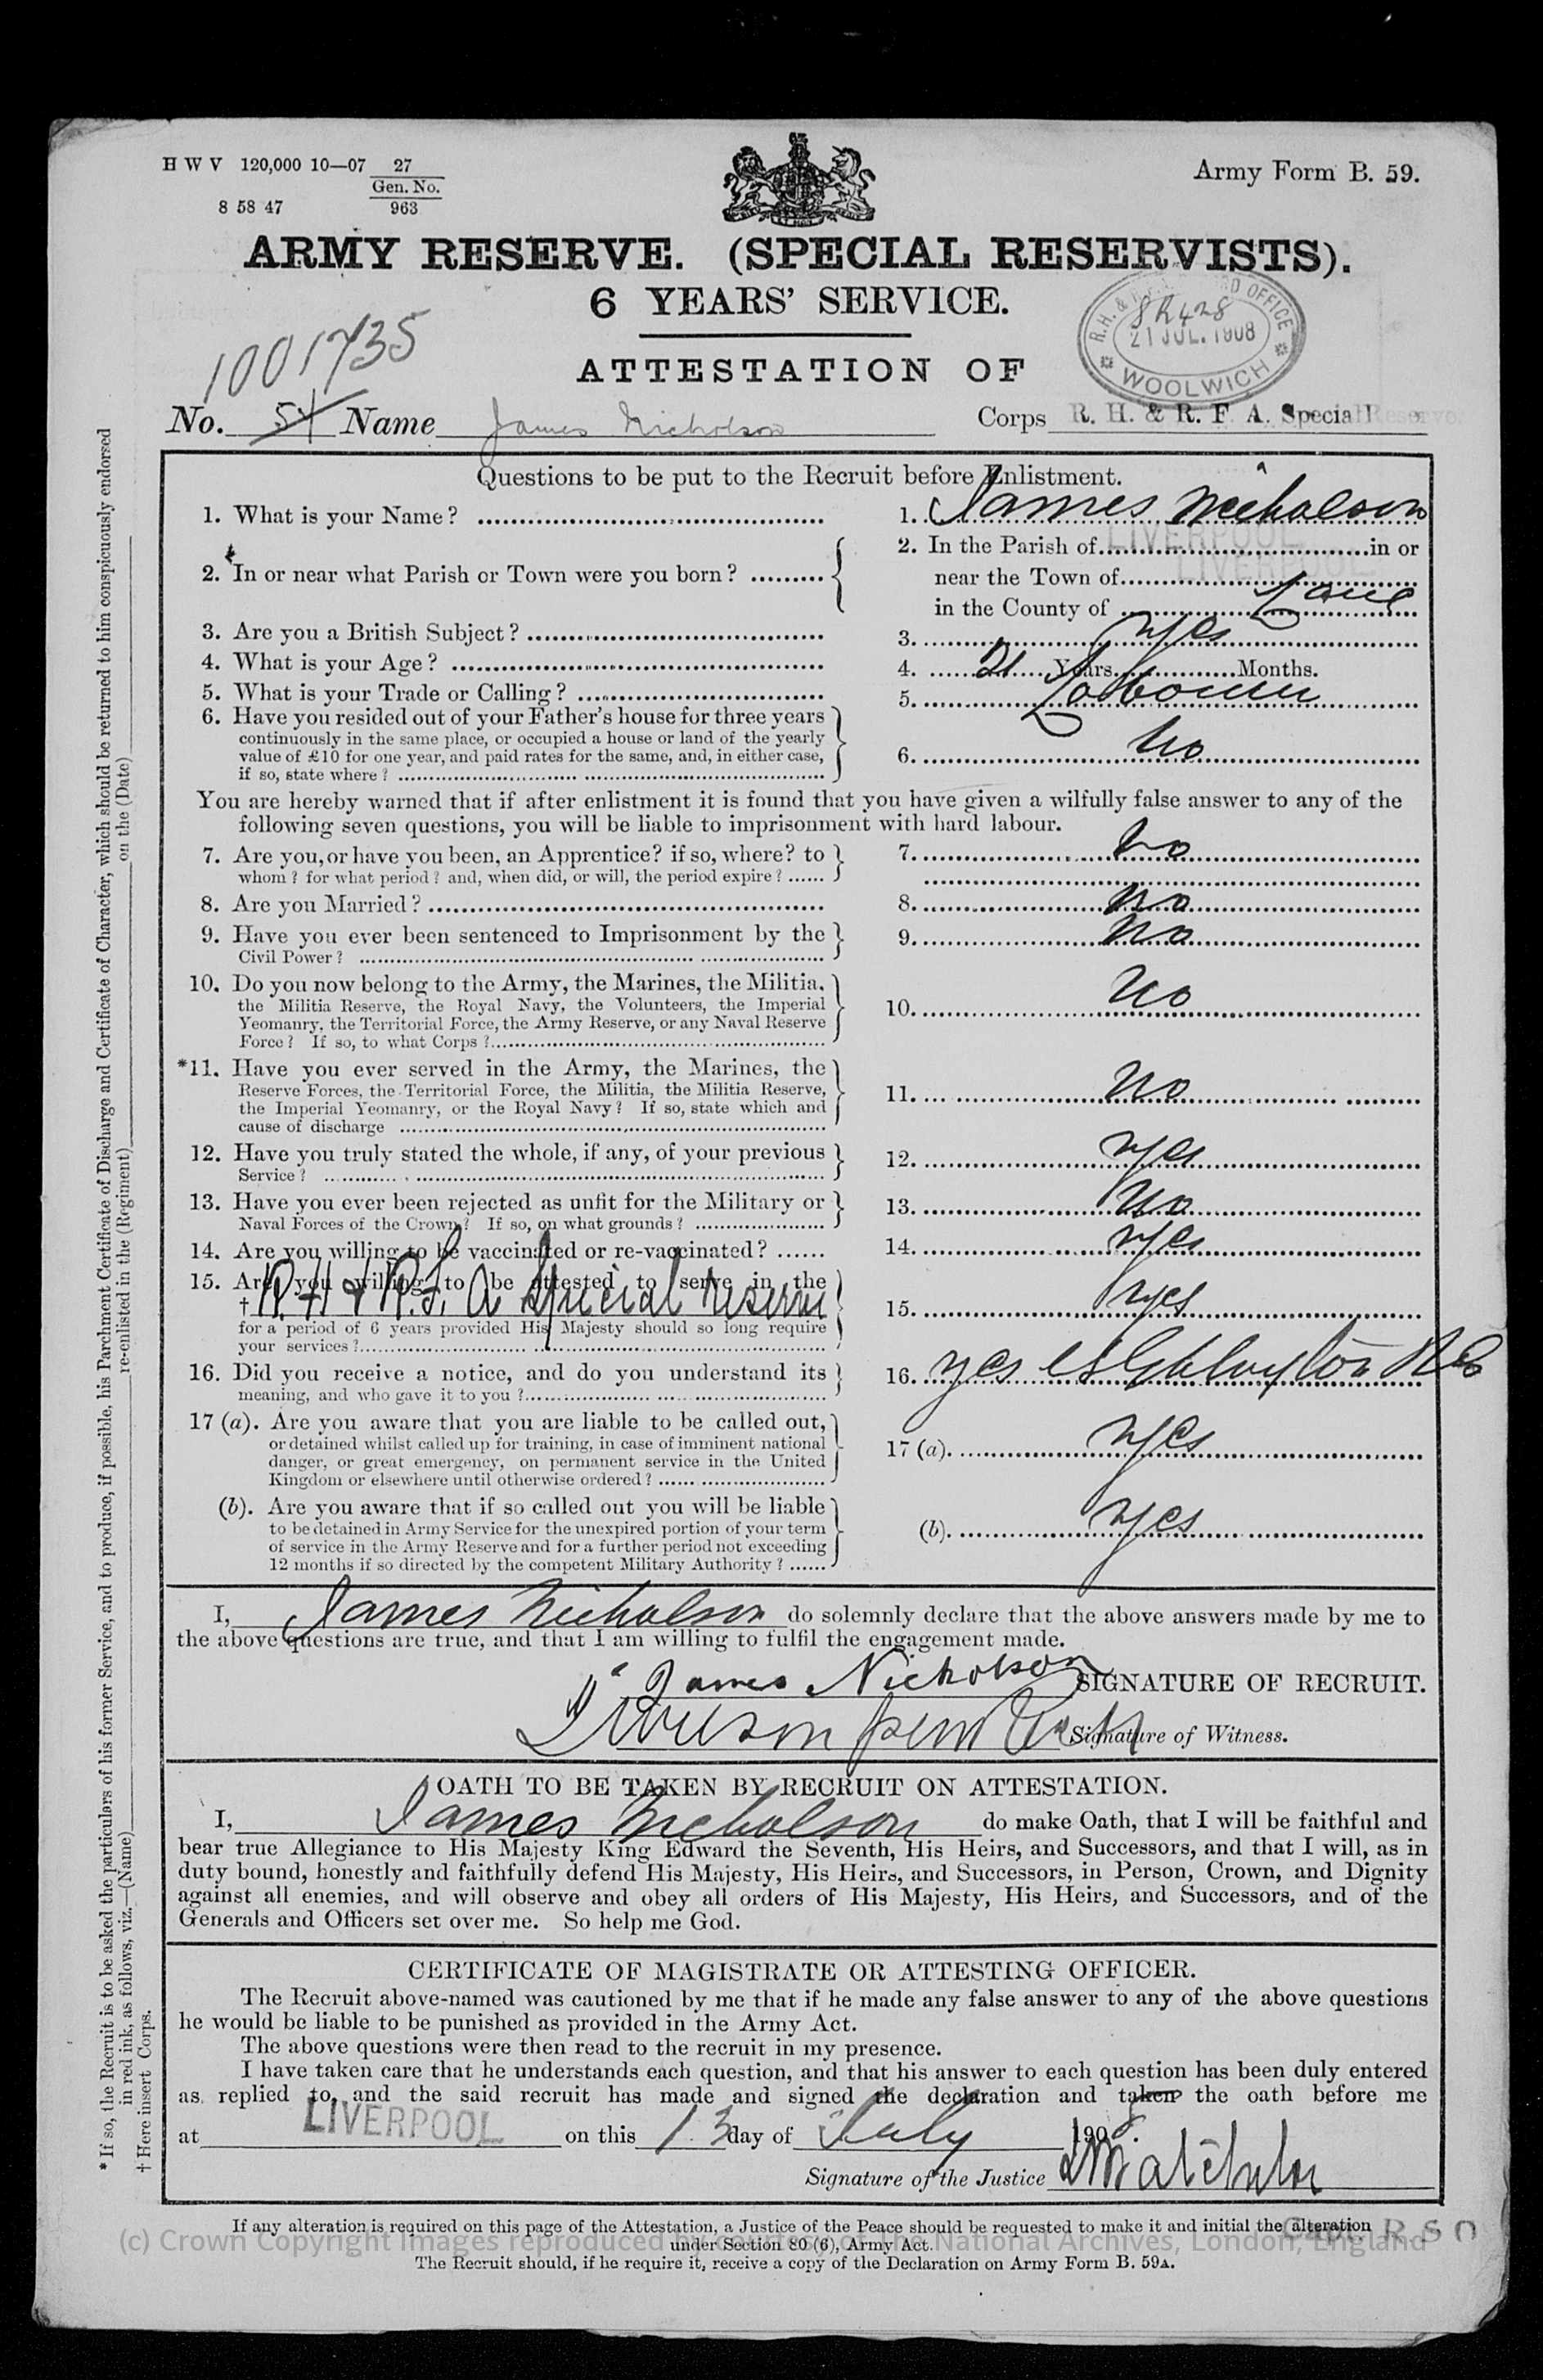 H W V 120,000 10—07 27
Gen. No.
8 58 47 963
Army Form B. 59.
ARMY RESERVE. (SPECIAL RESERVISTS).
6 YEARS' SERVICE.
R.H. & OFFICE
SR428
21 JUL. 1908
WOOLWICH
1001735
ATTESTATION OF
No. 54 Name James Nicholson Corps R. H. & R. F. A. Special Reserve
Questions to be put to the Recruit before Enlistment.
1. What is your Name? 1. James Nicholson
2. In or near what Parish or Town were you born? 2. In the Parish of LIVERPOOL in or
near the Town of LIVERPOOL
in the County of Lanc
3. Are you a British Subject? 3. yes
4. What is your Age? 4. 21 Years Months.
5. What is your Trade or Calling? 5. Labourer
6. Have you resided out of your Father's house for three years
continuously in the same place, or occupied a house or land of the yearly
value of £10 for one year, and paid rates for the same, and, in either case, 6. No
if so, state where?
You are hereby warned that if after enlistment it is found that you have given a wilfully false answer to any of the
following seven questions, you will be liable to imprisonment with hard labour.
7. Are you, or have you been, an Apprentice? if so, where? to 7. No
whom? for what period? and, when did, or will, the period expire?
8. Are you Married? 8. No
9. Have you ever been sentenced to Imprisonment by the 9. No
Civil Power?
10. Do you now belong to the Army, the Marines, the Militia,
the Militia Reserve, the Royal Navy, the Volunteers, the Imperial 10. No
Yeomanry, the Territorial Force, the Army Reserve, or any Naval Reserve
Force? If so, to what Corps?
*11. Have you ever served in the Army, the Marines, the
Reserve Forces, the Territorial Force, the Militia, the Militia Reserve, 11. No
the Imperial Yeomanry, or the Royal Navy? If so, state which and
cause of discharge
12. Have you truly stated the whole, if any, of your previous 12. yes
Service?
13. Have you ever been rejected as unfit for the Military or 13. No
Naval Forces of the Crown? If so, on what grounds?
14. Are you willing to be vaccinated or re-vaccinated? 14. yes
15. Are you willing to be attested to serve in the 15. yes
† R.H & R.F. A Special Reserve
for a period of 6 years provided His Majesty should so long require
your services?
16. Did you receive a notice, and do you understand its 16. yes
meaning, and who gave it to you?
17 (a). Are you aware that you are liable to be called out,
or detained whilst called up for training, in case of imminent national 17 (a). yes
danger, or great emergency, on permanent service in the United
Kingdom or elsewhere until otherwise ordered?
(b). Are you aware that if so called out you will be liable
to be detained in Army Service for the unexpired portion of your term (b). yes
of service in the Army Reserve and for a further period not exceeding
12 months if so directed by the competent Military Authority?
I, James Nicholson do solemnly declare that the above answers made by me to
the above questions are true, and that I am willing to fulfil the engagement made.
James Nicholson SIGNATURE OF RECRUIT.
Signature of Witness.
OATH TO BE TAKEN BY RECRUIT ON ATTESTATION.
I, James Nicholson do make Oath, that I will be faithful and
bear true Allegiance to His Majesty King Edward the Seventh, His Heirs, and Successors, and that I will, as in
duty bound, honestly and faithfully defend His Majesty, His Heirs, and Successors, in Person, Crown, and Dignity
against all enemies, and will observe and obey all orders of His Majesty, His Heirs, and Successors, and of the
Generals and Officers set over me. So help me God.
CERTIFICATE OF MAGISTRATE OR ATTESTING OFFICER.
The Recruit above-named was cautioned by me that if he made any false answer to any of the above questions
he would be liable to be punished as provided in the Army Act.
The above questions were then read to the recruit in my presence.
I have taken care that he understands each question, and that his answer to each question has been duly entered
as replied to, and the said recruit has made and signed the declaration and taken the oath before me
at LIVERPOOL on this 13 day of July 1908.
Signature of the Justice
Capt. R S O
If any alteration is required on this page of the Attestation, a Justice of the Peace should be requested to make it and initial the alteration
under Section 80 (6), Army Act.
The Recruit should, if he require it, receive a copy of the Declaration on Army Form B. 59A.
(c) Crown Copyright Images reproduced by courtesy of The National Archives, London, England
* If so, the Recruit is to be asked the particulars of his former Service, and to produce, if possible, his Parchment Certificate of Discharge and Certificate of Character, which should be returned to him conspicuously endorsed
in red ink, as follows, viz.—(Name) re-enlisted in the (Regiment) on the (Date)
† Here insert Corps.